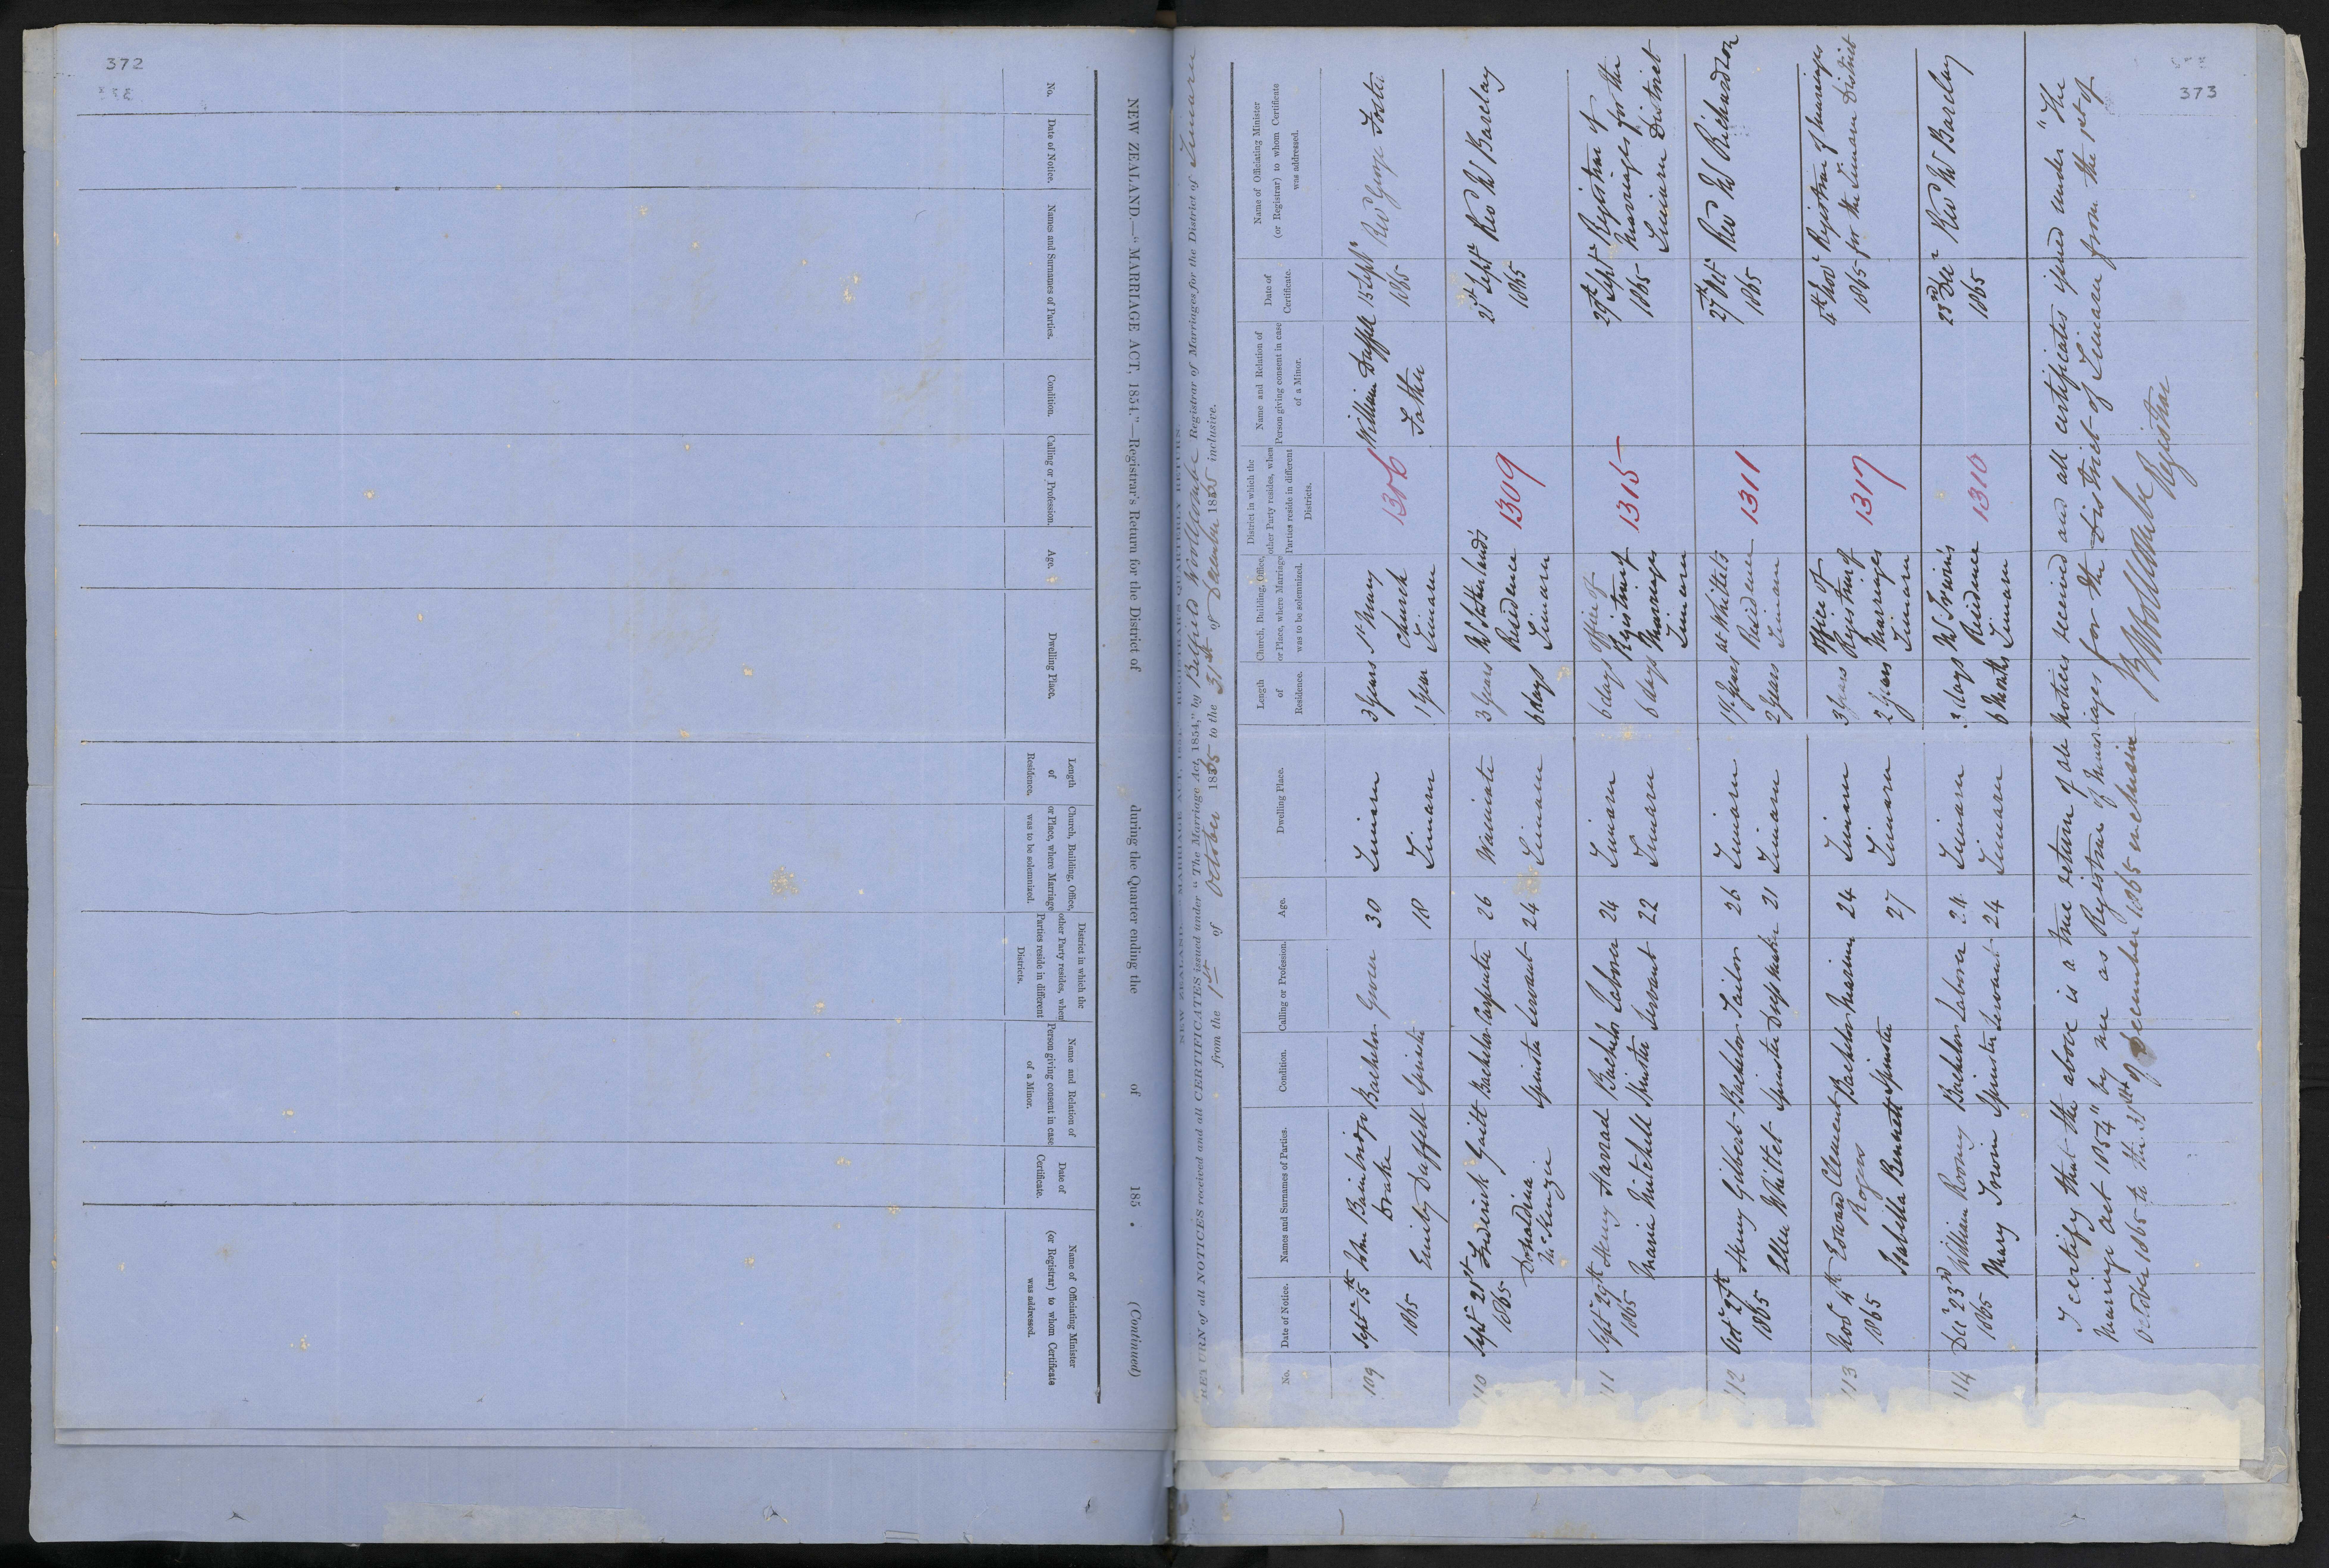 372
NEW ZEALAND.—"MARRIAGE ACT, 1854."—Registrar's Return for the District of during the Quarter ending the of 185 . (Continued)
No.
Date of Notice.
Names and Surnames of Parties.
Condition.
Calling or Profession.
Age.
Dwelling Place.
Length
of
Residence.
Church, Building, Office,
or Place, where Marriage
was to be solemnized.
District in which the
other Party resides, when
Parties reside in different
Districts.
Name and Relation of
Person giving consent in case
of a Minor.
Date of
Certificate.
Name of Officiating Minister
(or Registrar) to whom Certificate
was addressed.
373
NEW ZEALAND.—"MARRIAGE ACT, 1854." REGISTRAR'S QUARTERLY RETURN.
RETURN of all NOTICES received and all CERTIFICATES issued under "The Marriage Act, 1854," by Belfield Woollcombe Registrar of Marriages for the District of Timaru
from the 1st of October 1865 to the 31st of December 1865 inclusive.
No.
Date of Notice.
Names and Surnames of Parties.
Condition.
Calling or Profession.
Age.
Dwelling Place.
Length
of
Residence.
Church, Building, Office,
or Place, where Marriage
was to be solemnized.
District in which the
other Party resides, when
Parties reside in different
Districts.
Name and Relation of
Person giving consent in case
of a Minor.
Date of
Certificate.
Name of Officiating Minister
(or Registrar) to whom Certificate
was addressed.
109 Septr 15th John Bainbridge Bachelor Grocer 30 Timaru 3 years St Mary William Duffell 15 Septr Revd George Foster
Drake Church 1306 Father 1865
1865 Emily Duffell Spinster 18 Timaru 1 year Timaru
110 Septr 21st Frederick Gaitt Bachelor Carpenter 26 Waimate 3 years Mr Sutherland's 21st Septr Revd W Barclay
1865 Donaldina Spinster Servant 24 Timaru 6 days Residence 1309 1865
McKenzie Timaru
111 Septr 29th Henry Havrad Bachelor Laborer 24 Timaru 6 days Office of 29th Septr Registrar of
1865 Maria Mitchell Spinster Servant 22 Timaru 6 days Registrar of 1315 1865 Marriages for the
Marriages Timaru District
Timaru
112 Octr 27th Henry Gilbert Bachelor Tailor 26 Timaru 1½ years at Whittets 27th Octr Revd W Richardson
1865 Ellen Whittet Spinster Dressmaker 21 Timaru 2 years Residence 1311 1865
Timaru
113 Novr 4th Edward Clement Bachelor Mariner 24 Timaru 3 years Office of 4th Novr Registrar of Marriages
1865 Rogers Registrar of 1317 1865 for the Timaru District
Isabella Bennett Spinster 27 Timaru 2 years Marriages
Timaru
114 Decr 23rd William Rooney Bachelor Laborer 24 Timaru 3 days Mr Irwin's 23rd Decr Revd W Barclay
1865 Mary Irwin Spinster Servant 24 Timaru 6 Months Residence 1310 1865
Timaru
I certify that the above is a true return of all notices received and all certificates issued under "The
Marriage Act 1854" by me as Registrar of Marriages for the District of Timaru from the 1st of
October 1865 to the 31st of December 1865 inclusive
B Woollcombe
Registrar